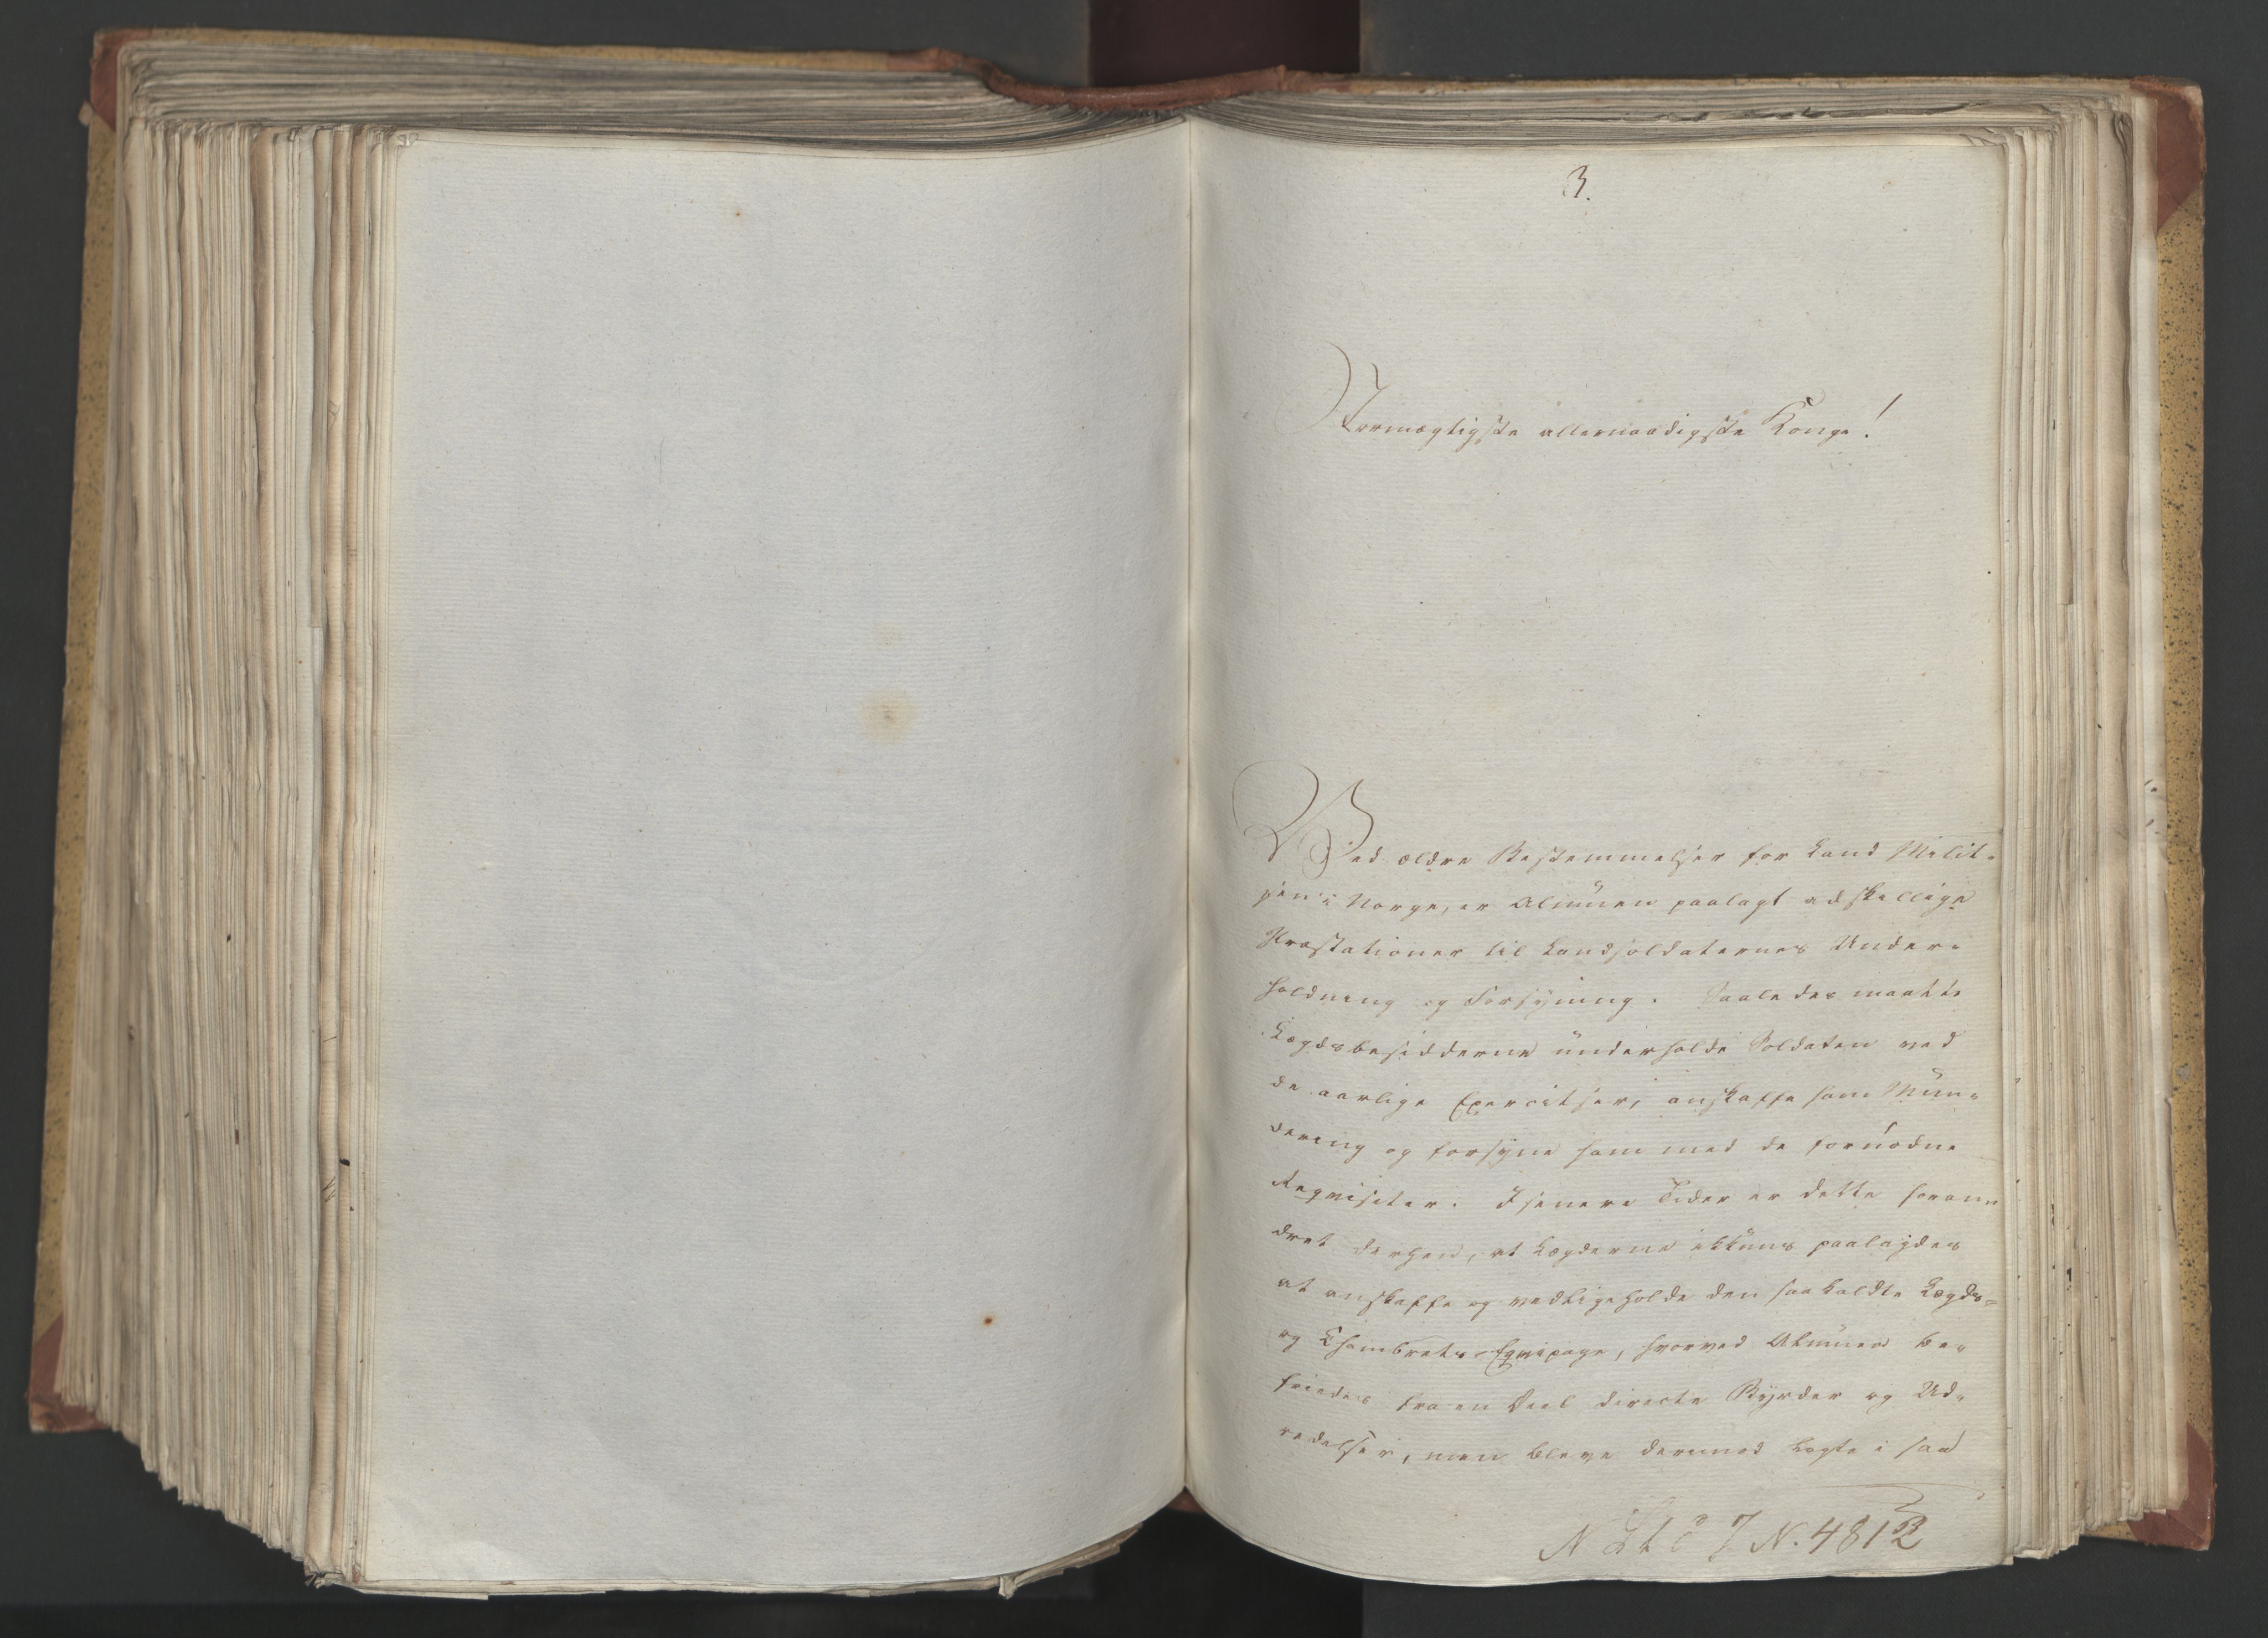 3.
Stormægtigste allernaadigste Konge!
Ved ældre Bestemmelser for Land Milit-
sen i Norge, er Almuen paalagt adskellige
Præstationer til Landsoldaternes Under-
holdning og Forsyning. Saaledes maatte
Lægdsbesidderne underholde Soldaten ved
de aarlige Exercitser, anskaffe ham Mun-
dering og forsyne ham med de fornødne
Requisiter. I senere Tider er dette foran-
dret derhen, at Lægderne ikkuns paalagdes
at anskaffe og vedligeholde den saakaldte Lægds-
og Chambrets-Equipage, hvorved Almuen be-
friedes fra en Deel directe Byrder og Ud-
redelser, men bleve derimod lagte i saa
N. 4812